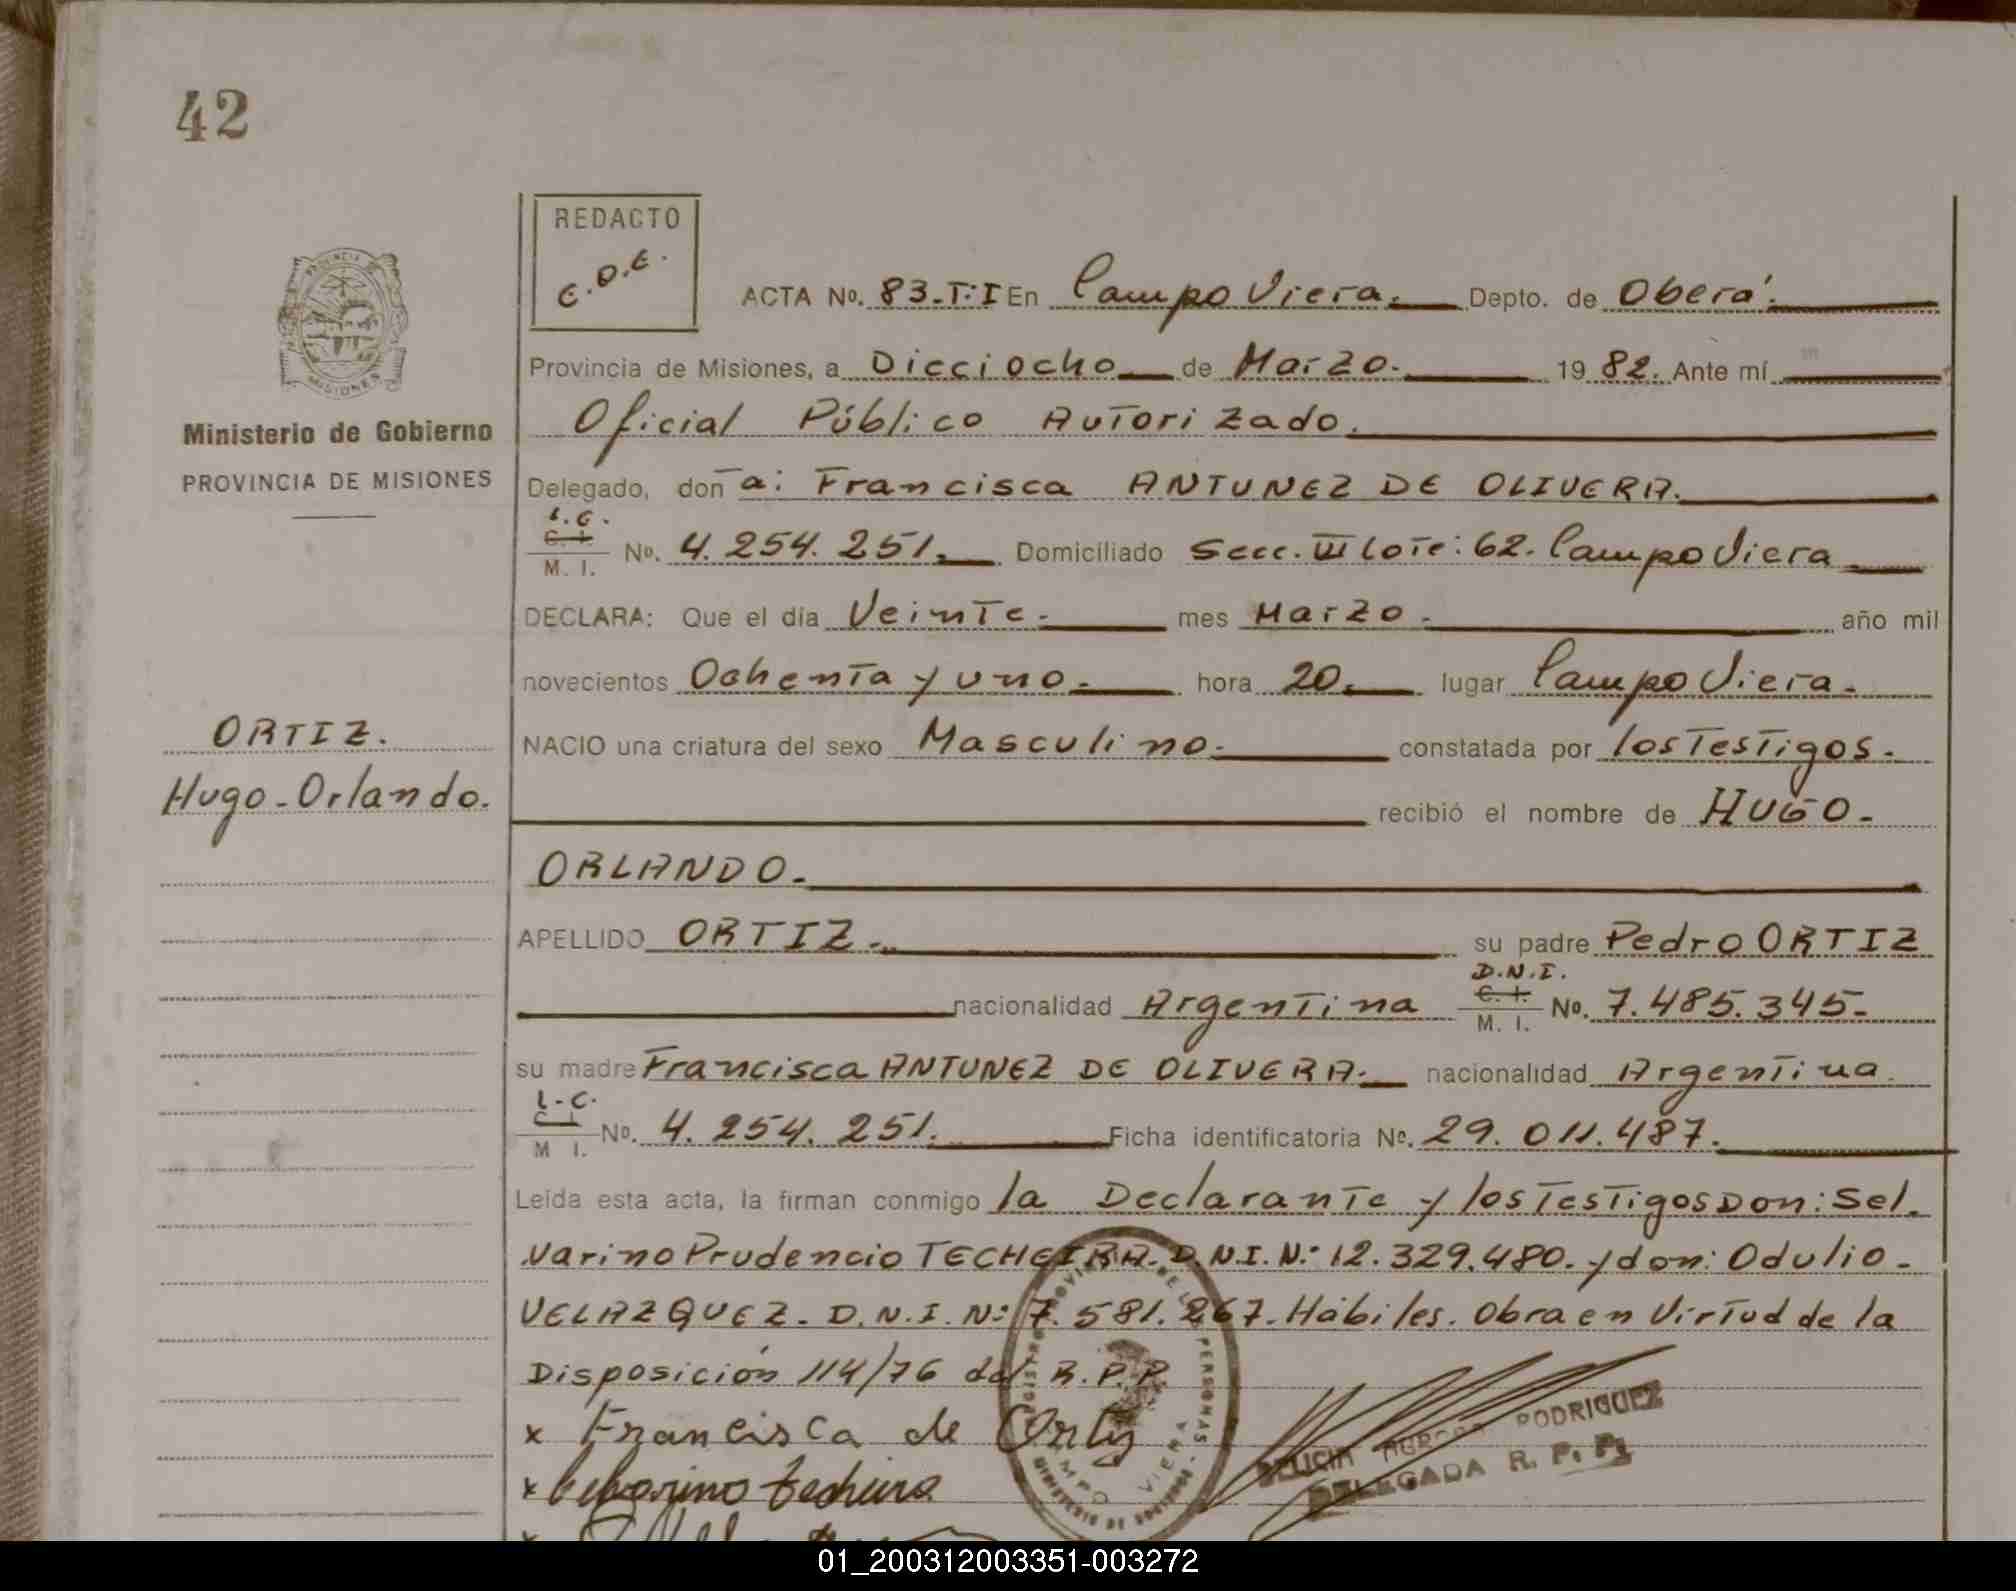 42
REDACTO
C.O.E.
ACTA No. 83-T:I En Campo Viera. Depto. de Oberá.
Provincia de Misiones, a Dieciocho de Marzo. 1982. Ante mí
Oficial Público Autorizado.
Ministerio de Gobierno
PROVINCIA DE MISIONES
Delegado, don a: Francisca ANTUNEZ DE OLIVERA.
L.C.
C. I.
M. I.
No. 4.254.251. Domiciliado Secc. III Lote: 62. Campo Viera
DECLARA: Que el día Veinte. mes Marzo. año mil
novecientos Ochenta y uno. hora 20. lugar Campo Viera.
ORTIZ.
Hugo-Orlando.
NACIO una criatura del sexo Masculino. constatada por los Testigos.
recibió el nombre de HUGO-
ORLANDO.
APELLIDO ORTIZ. su padre Pedro ORTIZ
D.N.I.
C. I.
M. I.
nacionalidad Argentina No. 7.485.345-
su madre Francisca ANTUNEZ DE OLIVERA. nacionalidad Argentina.
L-C.
C I
M I.
No. 4.254.251. Ficha identificatoria No. 29.011.487.
Leída esta acta, la firman conmigo la Declarante y los Testigos Don: Sel.
varino Prudencio TECHEIRA. D.N.I. N: 12.329.480. y don: Odulio-
VELAZQUEZ. D.N.I. N: 7.581.267. Hábiles. Obra en Virtud de la
Disposición 114/76 del R.P.P.
x Francisca de Ortiz
x techeira
RODRIGUEZ
DELEGADA R. P. P.
01_200312003351-003272